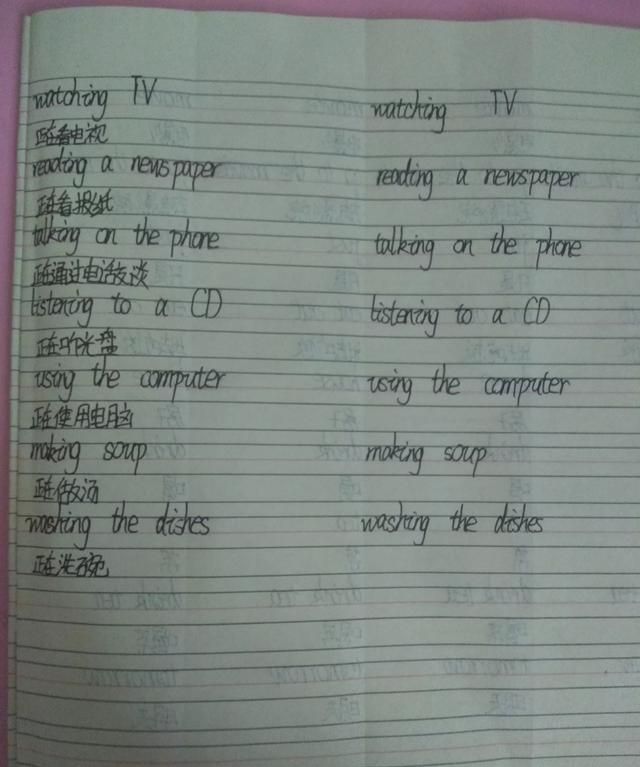 watching TV watching TV
正在看电视
reading a newspaper reading a newspaper
正在看报纸
talking on the phone talking on the phone
正在通过电话交谈
listening to a CD listening to a CD
正在听光盘
using the computer using the computer
正在使用电脑
making soup making soup
正在做汤
washing the dishes washing the dishes
正在洗碗